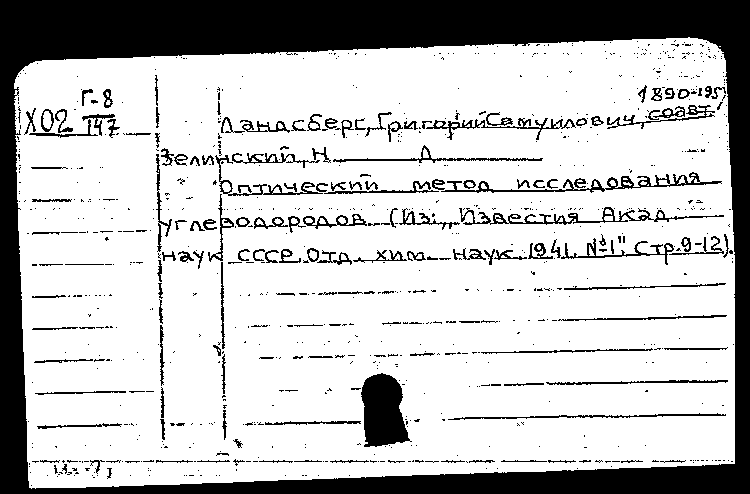 Г-8
Х02 147
1890-195
Ландсберг, Григорий Самуилович, соавт.
Зелинский, Н. Д.
Оптический метод исследования
углеводородов. (Из: „Известия Акад.
наук СССР. Отд. хим. наук, 1941, №1", Стр. 9-12).